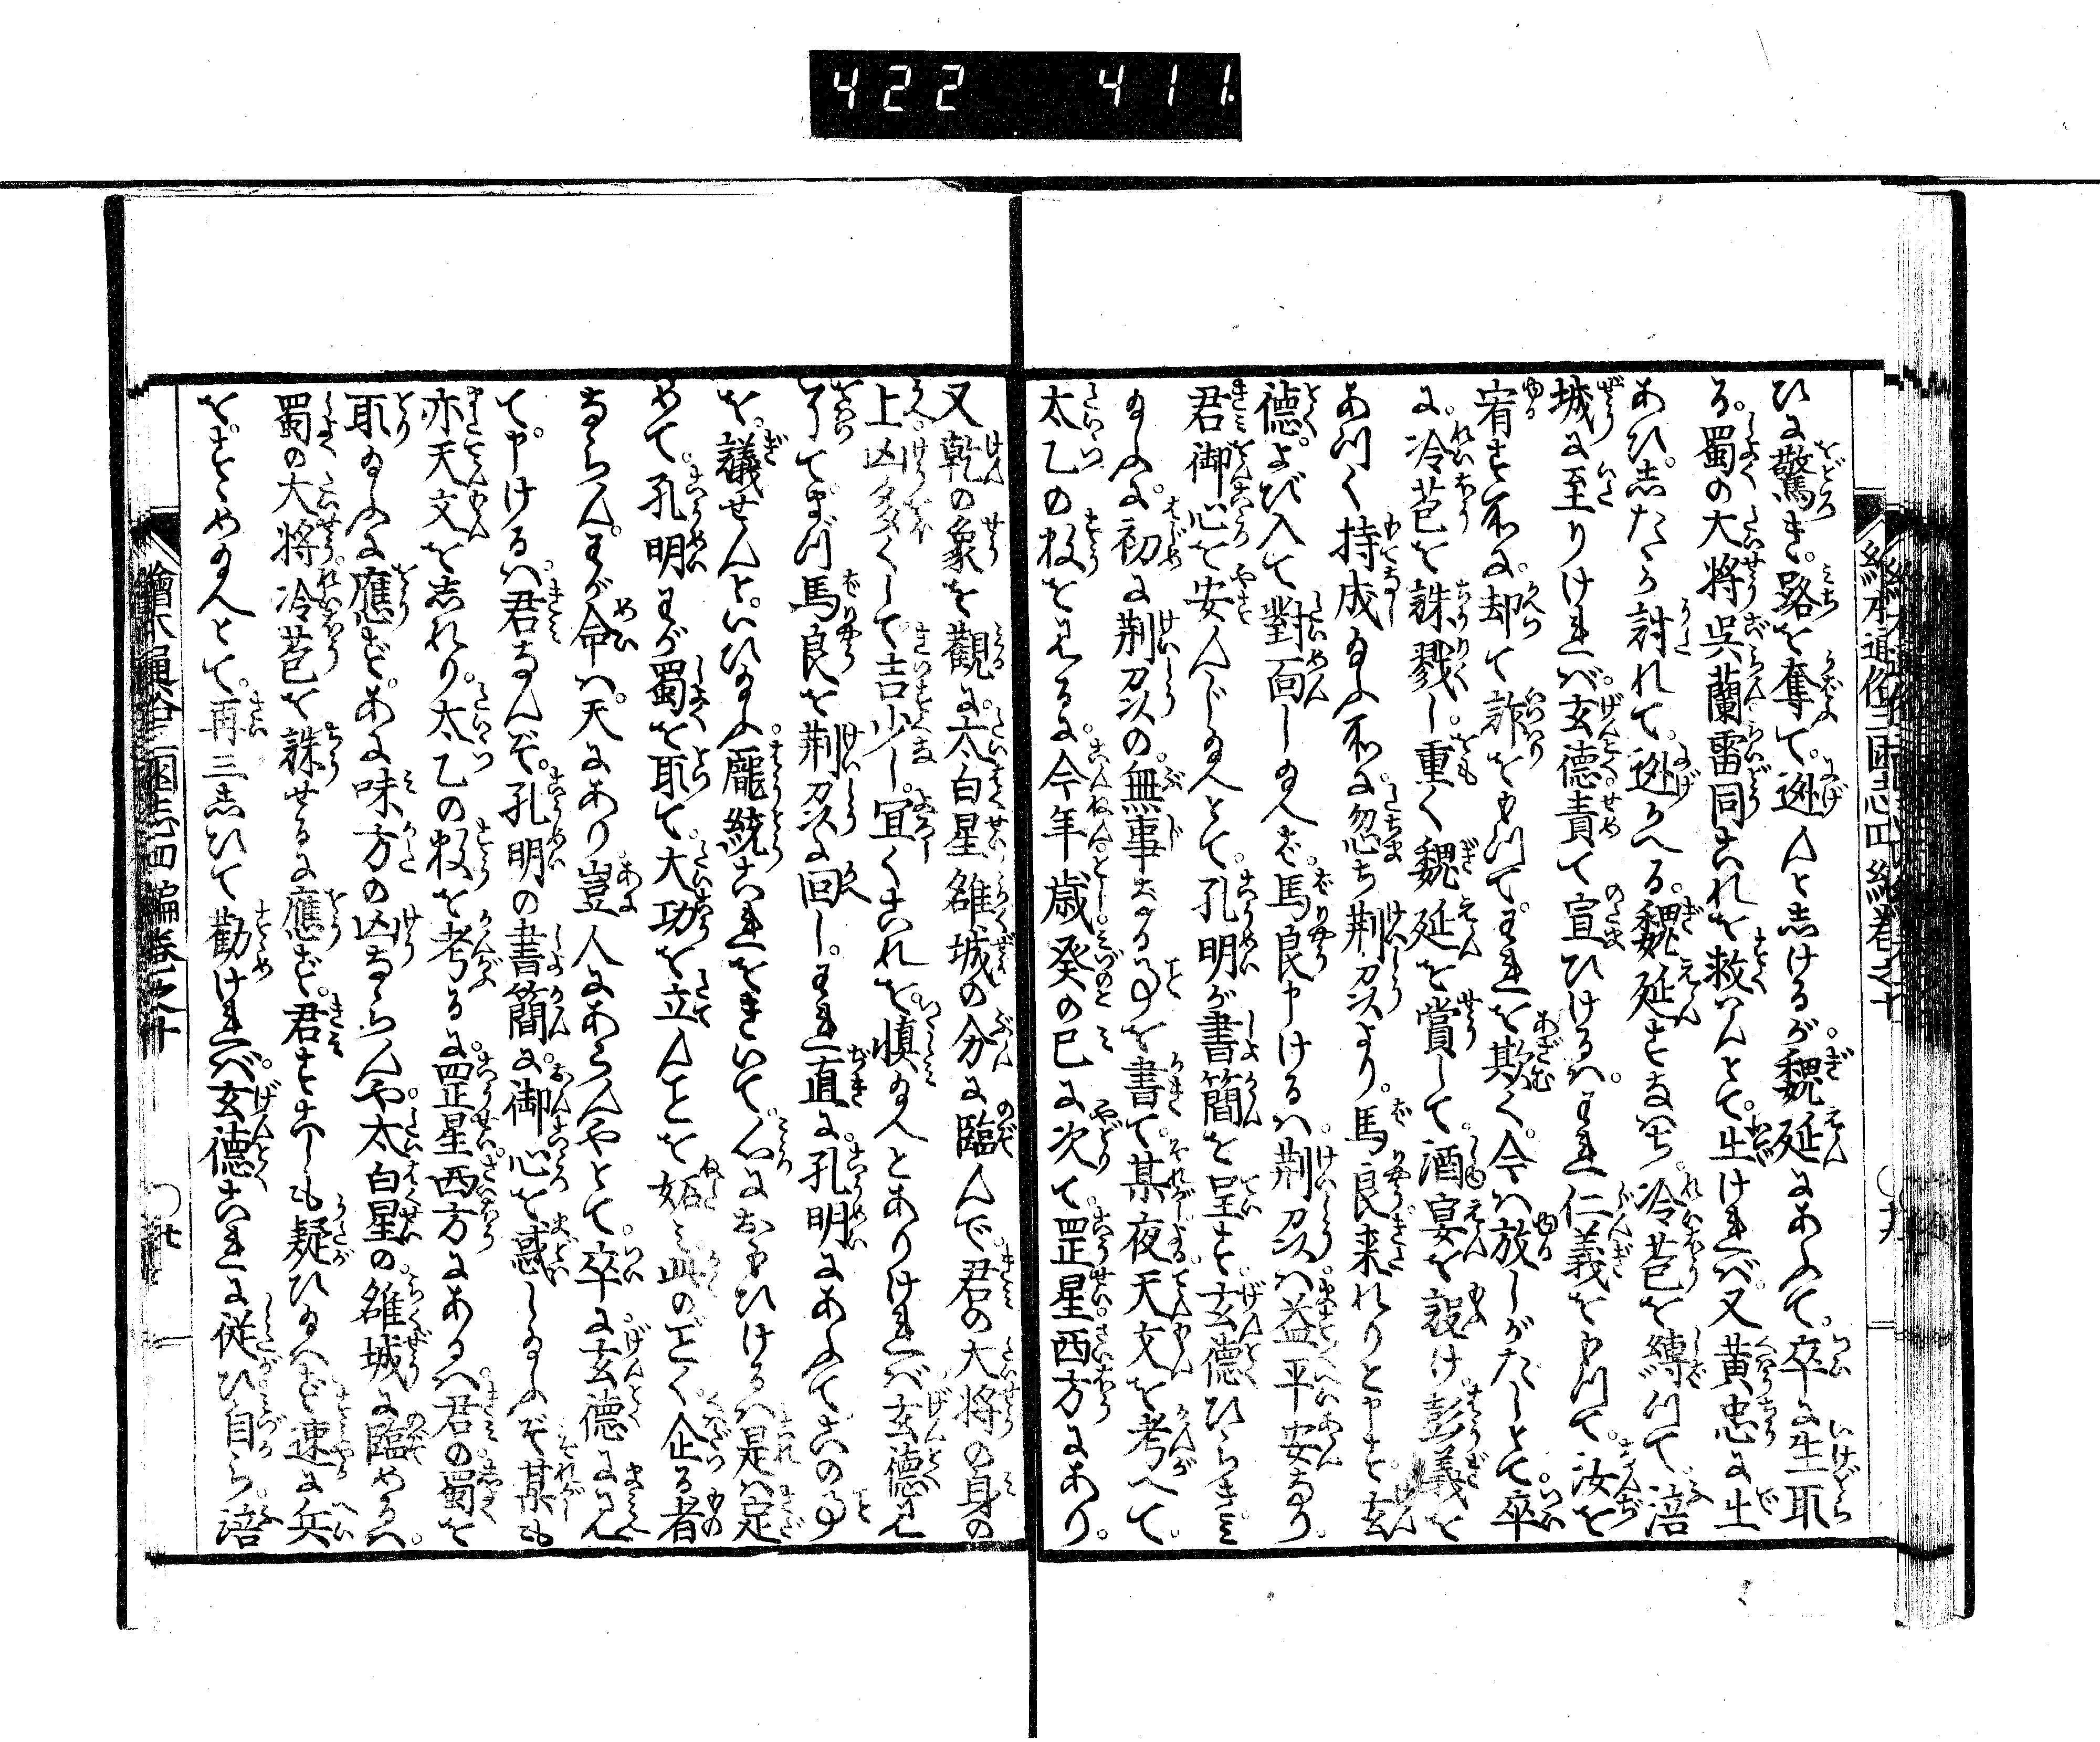 422 411
繪本通俗三國志四編卷之十
ひに驚き。路を奪て。迯んとしけるが。魏延にあふて。卒に生取
る。蜀の大将呉蘭雷同これを救はんとて。出けれバ。又黄忠に出
あひ。したゝか討れて。迯かへる。魏延すなハち。冷苞を縛つて。涪
城に至りけれバ。玄德責て宣ひけるハ。われ仁義をもつて。汝を
宥す所に。却て詐をもつて。われを欺く。今ハ放しがたしとて。卒
に。冷苞を誅戮し。重く魏延を賞して。酒宴を設け。彭義を
あつく持成玉ふ所に。忽ち荆刕より。馬良来れりと申す。玄
德。よび入て對面し玉へバ。馬良申けるハ。荆刕ハ益平安なり。
君御心を安んじ玉へとて。孔明が書簡を呈す。玄德ひらき見
玉ふに。初に荆刕の。無事なる事を書て。某夜天文を考へて。
太乙の数を見るに。今年歳癸の巳に次て。罡星西方にあり。
又乾の象を觀に。太白星雒城の分に臨んで。君の大将の身の
上。凶多くして。吉少し。宜くこれを。慎玉へとありけれバ。玄德見
了て。まづ馬良を荆刕に回し。われ直に。孔明にあふて。この事
を。議せんと。いひ玉ふ。龐統これをきいて。心におもひけるハ。是ハ定
めて。孔明。わが蜀を取て。大功を立んことを妬み。此のごとく企る者
ならん。わが命ハ。天にあり。豈人にあらんやとて。卒に玄德に見え
て。申けるハ。君なんぞ。孔明の書簡に。御心を惑し玉ふぞ。某も
亦天文をしれり。太乙の数を考るに。罡星西方にあるハ。君の蜀を
取玉ふに應ず。あに味方の凶ならんや。太白星の雒城に臨めるハ。
蜀の大将冷苞を誅せるに應ず。君すこしも疑ひ玉ハず。速に兵
をすゝめ玉へとて。再三しひて勸けれバ。玄德これに従ひ。自ら。涪
繪本通俗三國志四編卷之十
〇七